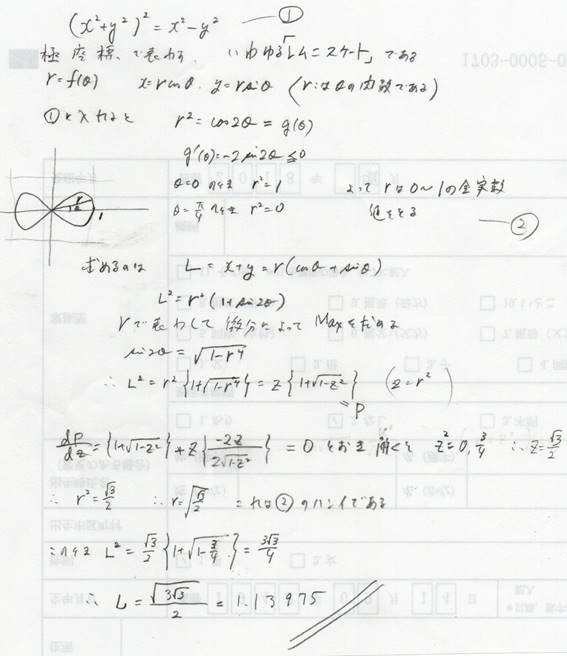 (x²+y²)² = x²-y² ①
極座標で表わす、いわゆる「レムニスケート」である
r=f(θ) x=rcosθ, y=rsinθ (rはθの関数である)
①に入れると r²=cos2θ=g(θ)
g'(θ)=-2sin2θ≦0
θ=0のとき r²=1 よってrは0~1の全実数
θ=π/4のとき r²=0 値をとる ②
r
1
求めるのは L=x+y=r(cosθ+sinθ)
L²=r²(1+sin2θ)
rで表わして微分によってMaxを求める
sin2θ=√(1-r⁴)
∴ L²=r²{1+√(1-r⁴)}=z{1+√(1-z²)} (z=r²)
=P
dP/dz={1+√(1-z²)}+z{-2z/(2√(1-z²))}=0とおき解くと z²=0, 3/4 ∴z=√3/2
∴ r²=√3/2 ∴r=√(√3/2) これは②のハンイである
このとき L²=√3/2{1+√(1-3/4)}=3√3/4
∴ L=√(3√3)/2=1.13975